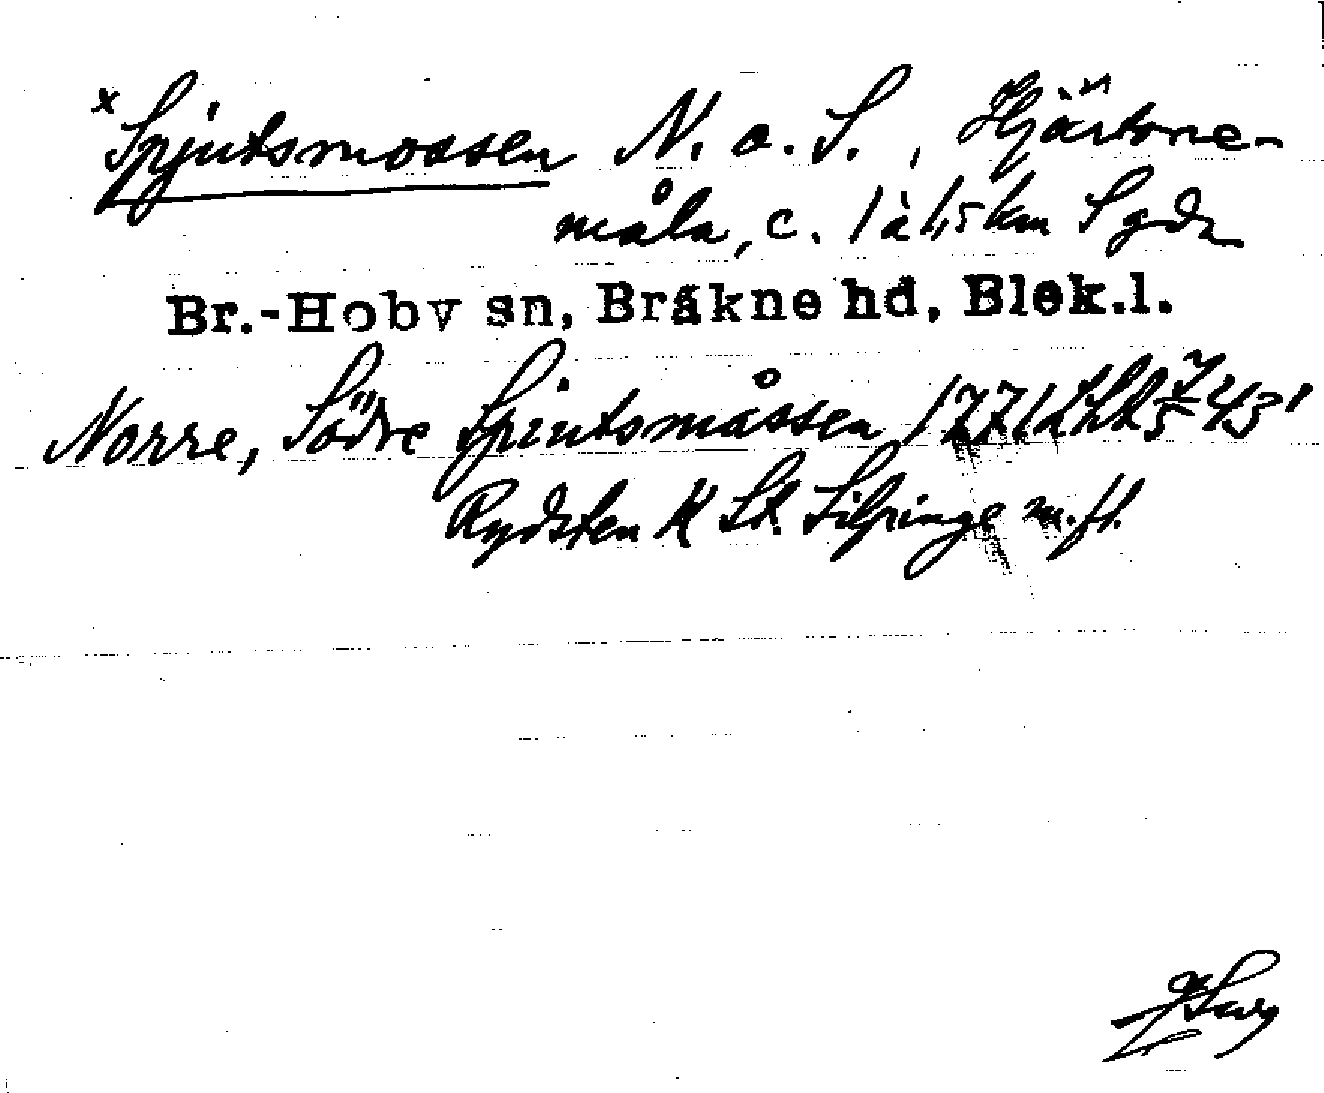 x Spjutsmossen N. o. S., Hjärtone-
måla, c. 1 à 1,5 km S gdn
Br.-Hoby sn, Bräkne hd, Blek.l.
Norre, Södre Spiutsmåssen 1771
Rydsten K St. Silpinge m.fl.